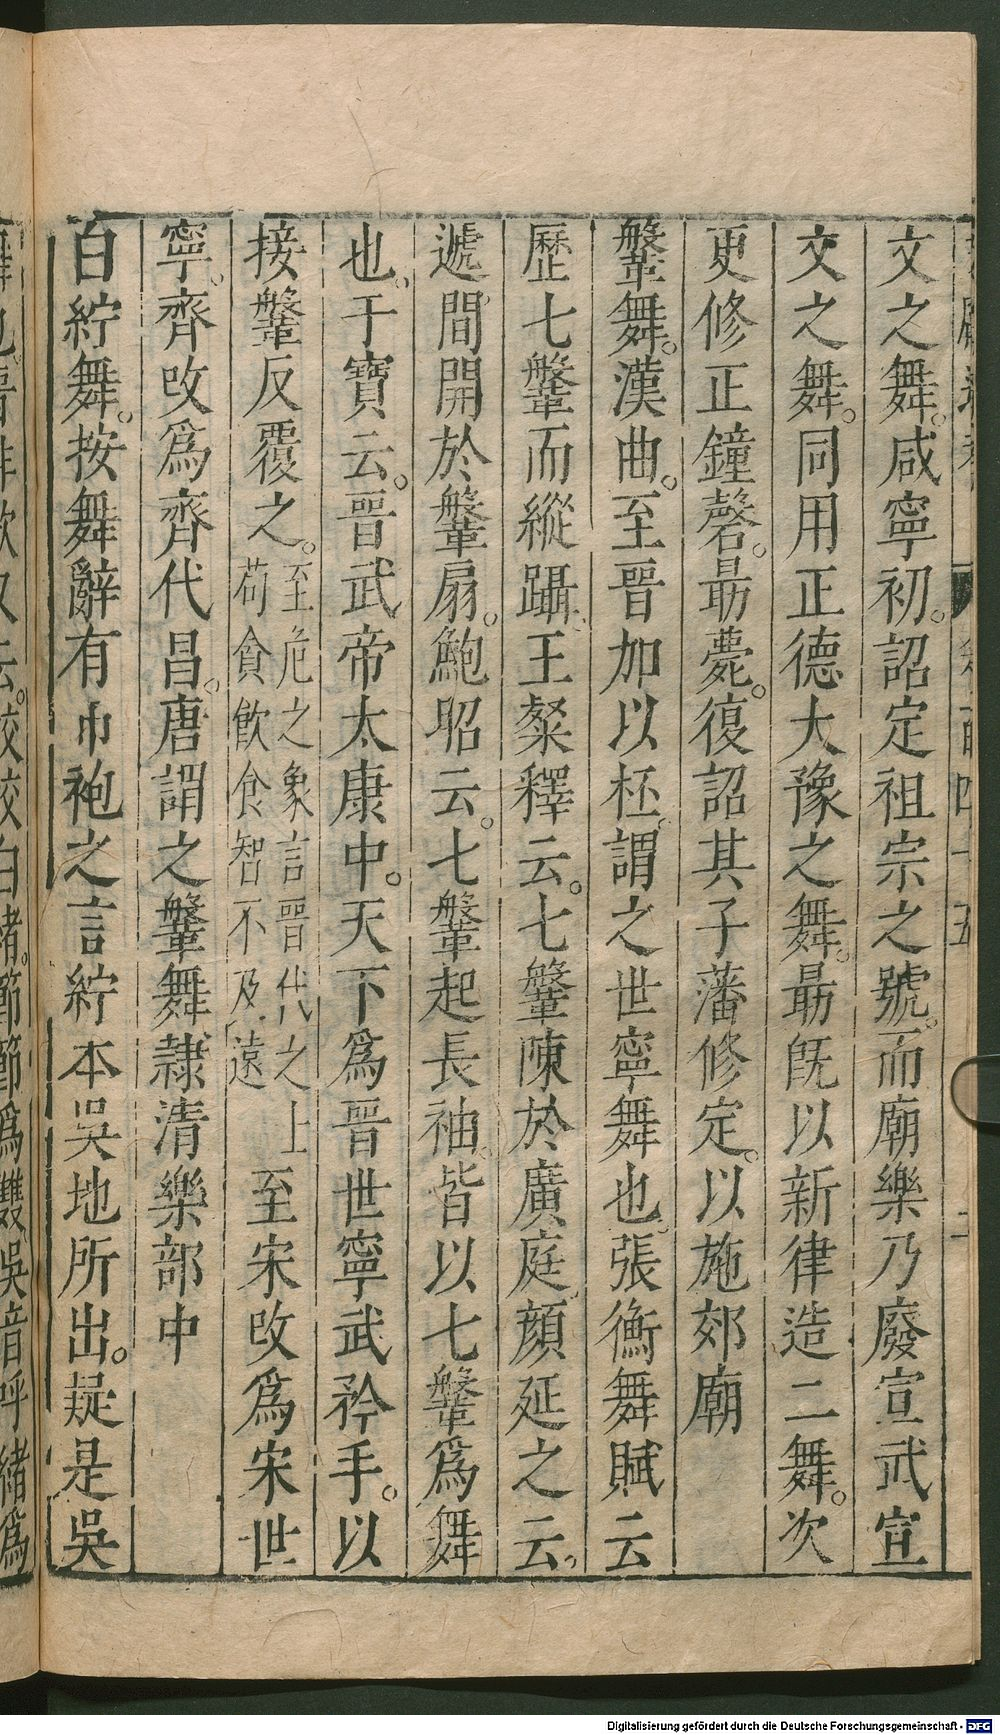 文之舞。咸寧初。詔定祖宗之號。而廟樂乃廢宣武宣
文之舞。同用正德大豫之舞。勗既以新律造二舞。次
更修正鐘磬。勗薨。復詔其子藩修定。以施郊廟
鞶舞。漢曲。至晉加以柸。謂之世寧舞也。張衡舞賦云
歷七鞶而縱躡。王粲釋云。七鞶陳於廣庭。顏延之云。
遞間開於鞶扇。鮑昭云。七鞶起長袖。皆以七鞶爲舞
也。于寶云。晉武帝太康中。天下爲晉世寧武矜手。以
接鞶反覆之。至危之象言晉代之上苟貪飲食智不及遠至宋改爲宋世
寧。齊改爲齊代昌。唐謂之鞶舞隷清樂部中
白紵舞。按舞辭有巾袍之言紵本吳地所出。疑是吳
Digitalisierung gefördert durch die Deutsche Forschungsgemeinschaft - DFG